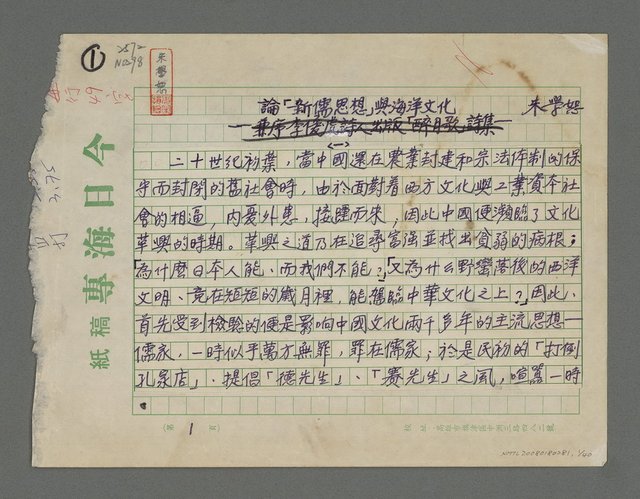 ①
2572
No.98
朱學恕
49
論「新儒思想」與海洋文化 朱學恕
(一)
二十世紀初葉，當中國還在農業封建和宗法体制的保
守而封閉的舊社會時，由於面對着西方文化與工業資本社
會的相逼，內憂外患，接踵而來；因此中國便瀕臨了文化
革興的時期。革興之道乃在追尋富强並找出貧弱的病根；
「為什麼日本人能、而我們不能？」「又為什么野蠻落後的西洋
文明、竟在短短的歲月裡，能駕臨中華文化之上？」因此、
首先受到檢驗的便是影响中國文化兩千多年的主流思想—
儒家，一時似乎萬方無罪，罪在儒家；於是民初的「打倒
孔家店」、提倡「德先生」、「賽先生」之風，喧囂一時
今日海專稿紙
(第 1 頁)
NMTL20080180281, 1/40